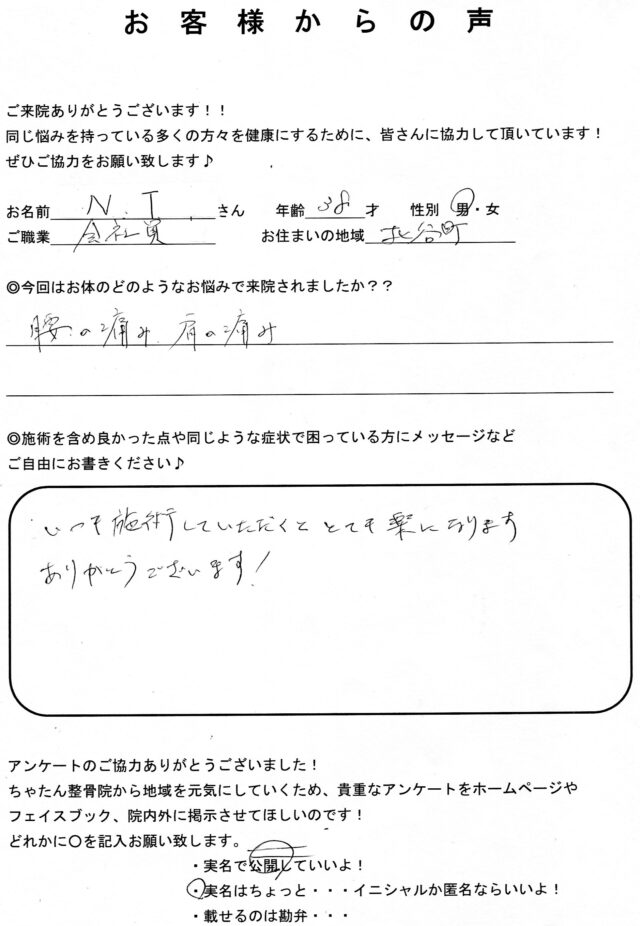 お客様からの声
ご来院ありがとうございます！！
同じ悩みを持っている多くの方々を健康にするために、皆さんに協力して頂いています！
ぜひご協力をお願い致します♪
お名前 N.T. さん 年齢 38 才 性別 男・女
ご職業 会社員 お住まいの地域 北谷町
◎今回はお体のどのようなお悩みで来院されましたか？？
腰の痛み 肩の痛み
◎施術を含め良かった点や同じような症状で困っている方にメッセージなど
ご自由にお書きください♪
いつも施術していただくと とても楽になります
ありがとうございます！
アンケートのご協力ありがとうございました！
ちゃたん整骨院から地域を元気にしていくため、貴重なアンケートをホームページや
フェイスブック、院内外に掲示させてほしいのです！
どれかに〇を記入お願い致します。
・実名で公開していいよ！
・実名はちょっと・・・イニシャルか匿名ならいいよ！
・載せるのは勘弁・・・